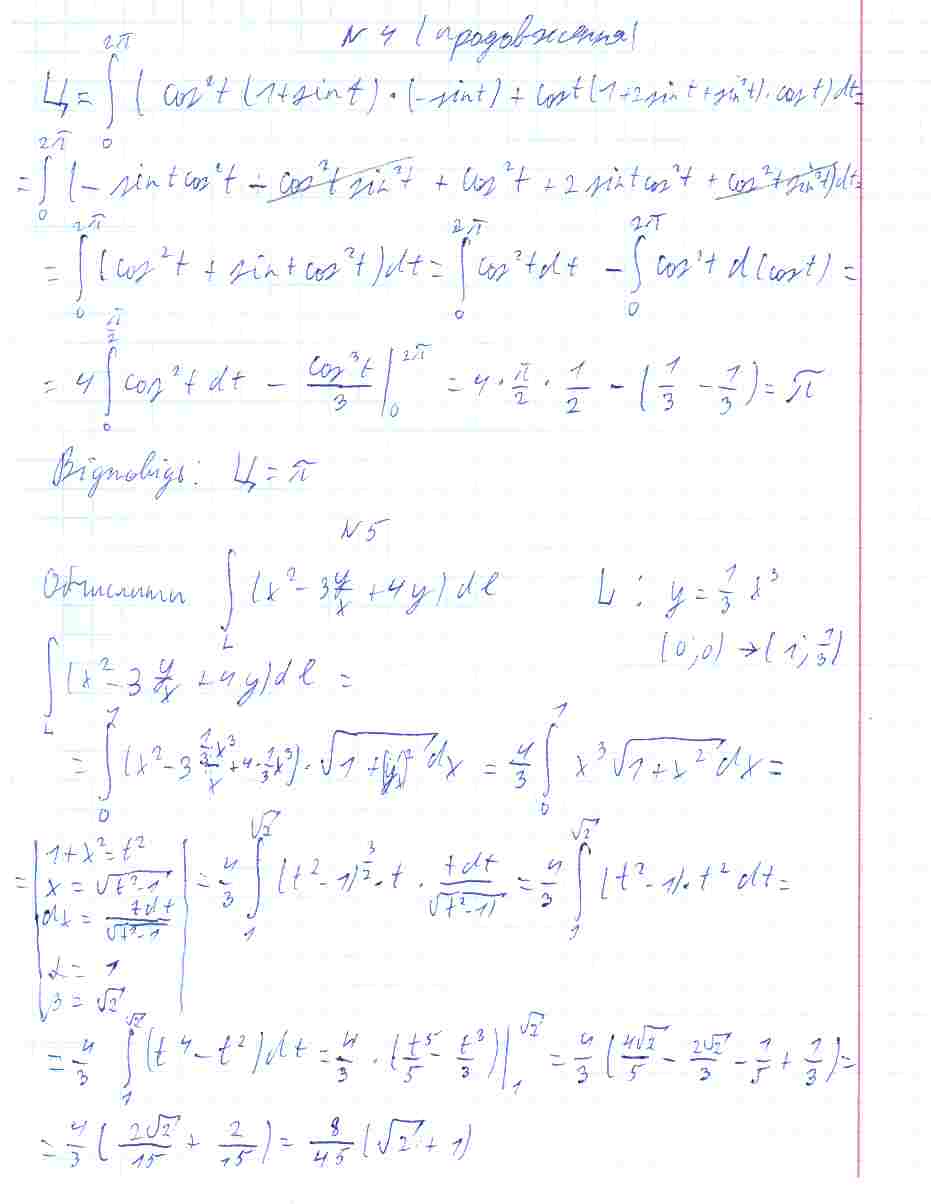 N 4 (продовження)
Ц = ∫₀^{2π} (cos²t (1+sint)·(-sint) + cost(1+2sint+sin²t)·cost)dt=
= ∫₀^{2π} (- sintcos²t - cos²t sin²t + cos²t + 2 sintcos²t + cos²t sin²t)dt=
= ∫₀^{2π} (cos²t + sintcos²t)dt = ∫₀^{2π} cos²tdt - ∫₀^{2π} cos²t d(cost) =
= 4 ∫₀^{π/2} cos²t dt - cos³t/3 |₀^{2π} = 4·π/2·1/2 - (1/3 - 1/3) = π
Відповідь: Ц = π
N 5
Обчислити ∫_L (x² - 3 y/x + 4y) dl L : y = 1/3 x³
(0;0) → (1; 1/3)
∫_L (x² - 3 y/x + 4y)dl =
= ∫₀¹ (x² - 3 (1/3 x³)/x + 4·1/3 x³)·√(1+(y'ₓ)²) dx = 4/3 ∫₀¹ x³ √(1+x²) dx =
= | 1+x² = t² x = √(t²-1) dx = tdt/√(t²-1) α = 1 β = √2 | = 4/3 ∫₁^{√2} (t²-1)^{3/2}·t·tdt/√(t²-1) = 4/3 ∫₁^{√2} (t²-1)·t² dt =
= 4/3 ∫₁^{√2} (t⁴ - t²)dt = 4/3·(t⁵/5 - t³/3)|₁^{√2} = 4/3 (4√2/5 - 2√2/3 - 1/5 + 1/3) =
= 4/3 (2√2/15 + 2/15) = 8/45 (√2 + 1)